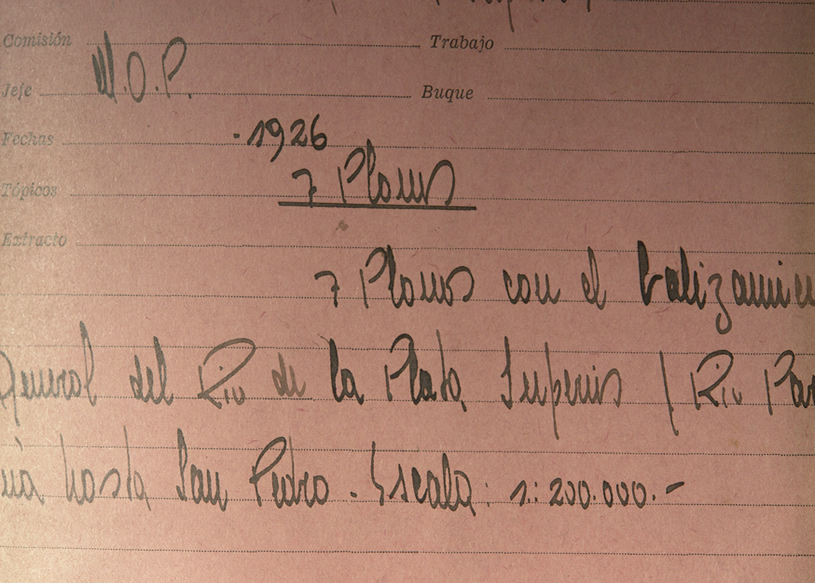 Comisión Trabajo
Jefe M.O.P. Buque
Fechas -1926
Tópicos 7 Planos
Extracto
7 Planos con el balizamien
General del Rio de la Plata Superior / Rio Par
ná hasta San Pedro. Escala: 1:200.000.-